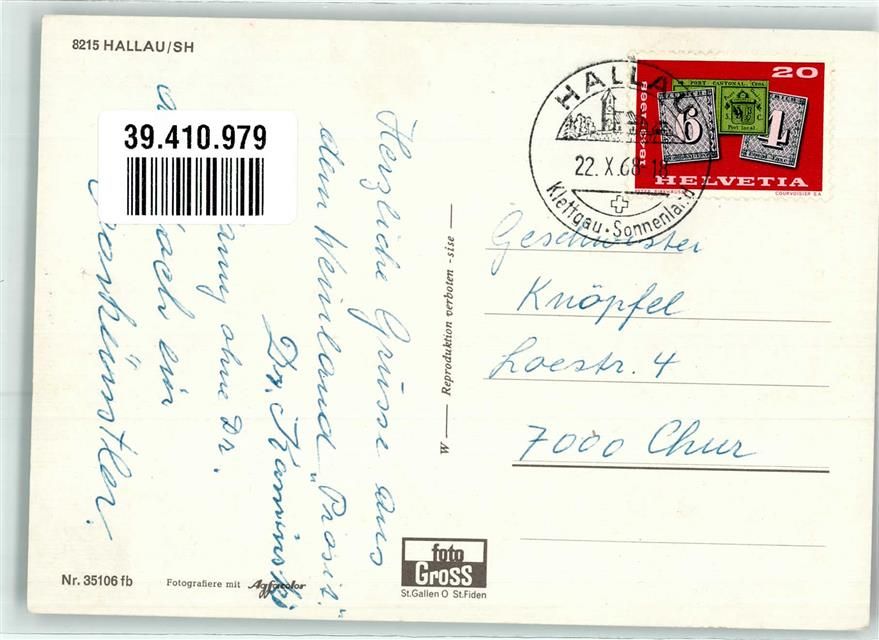 8215 HALLAU/SH
39.410.979
Herzliche Grüsse aus
dem Weinland „Prosit“
Dr. Kaminski
ohne Dr.
ein
W — Reproduktion verboten - sise —
HALLAU
22. X. 68-18
Klettgau · Sonnenland
20
PORT CANTONAL
Port local
6
4
1843-1968
HELVETIA
COURVOISIER S.A.
Geschwister
Knöpfel
Loestr. 4
7000 Chur
foto
Gross
St.Gallen O St.Fiden
Nr. 35106 fb
Fotografiere mit Agfacolor